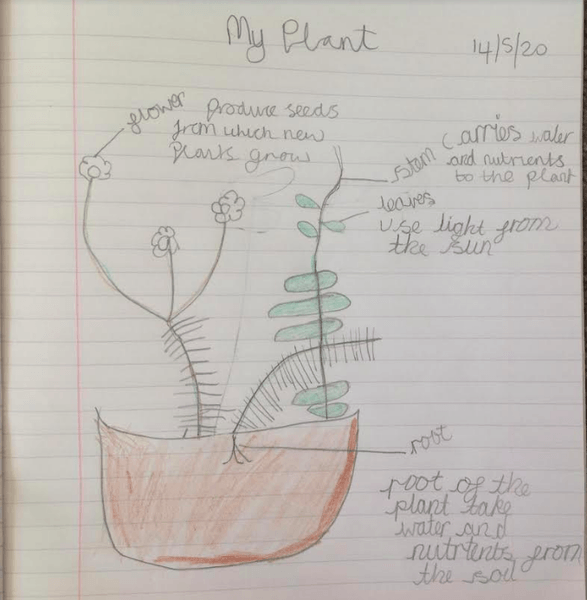 My Plant
14/5/20
flower
Produce seeds
from which new
Plants grow
stem
Carries water
and nutrients
to the plant
leaves
Use light from
the sun
root
root of the
plant take
water and
nutrients from
the soil